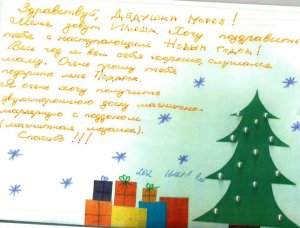 Здравствуй, Дедушка Мороз!
Меня зовут Илюша. Хочу поздравить
тебя с наступающим Новым годом!
Весь год я вел себя хорошо, слушался
маму. Очень прошу тебя
подарить мне Подарок.
Я очень хочу получить
двухстороннюю доску магнитно-
маркерную с поддоном
(магнитная мозаика).
Спасибо!!!